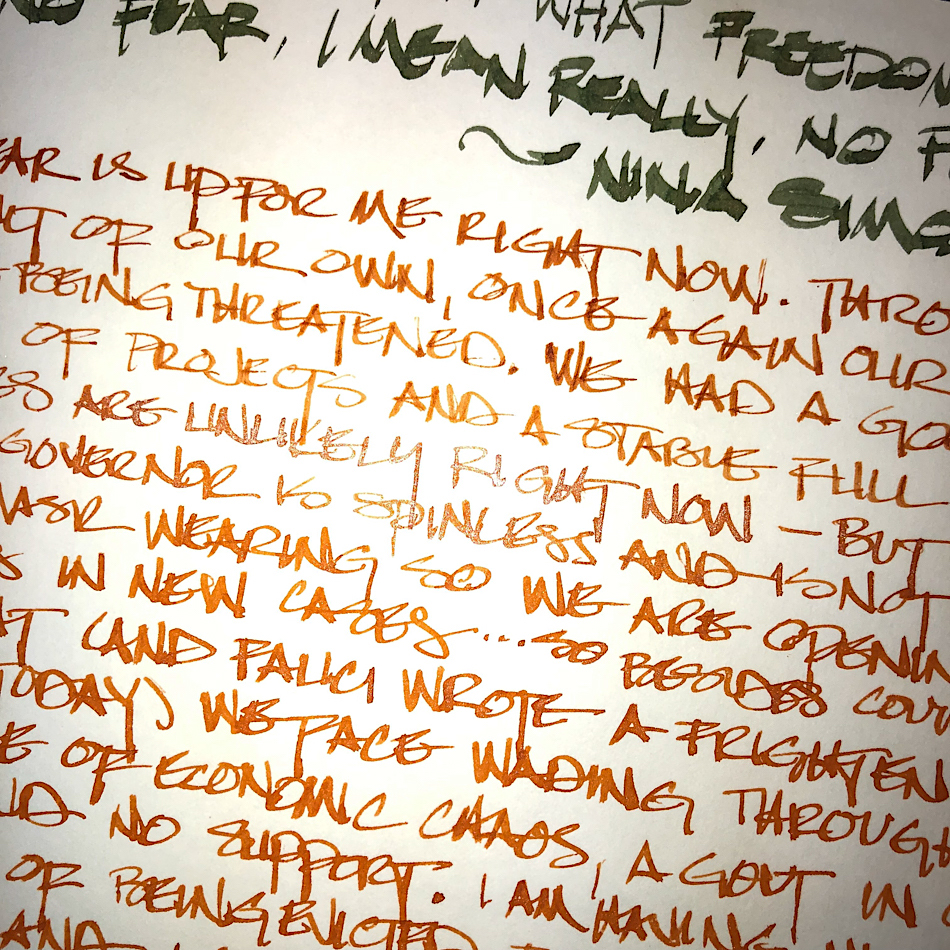 WHAT FREEDOM
NO FEAR, I MEAN REALLY, NO F
~ NINA SIMO
EAR IS UP FOR ME RIGHT NOW. THRO
OF OUR OWN, ONCE AGAIN OUR
BEING THREATENED. WE HAD A GO
OF PROJECTS AND A STABLE FULL
ES ARE UNLIKELY RIGHT NOW - BUT
GOVERNOR IS SPINELESS AND IS NOT
MASK WEARING SO WE ARE OPENIN
S IN NEW CASES... SO BESIDES COV
AT (AND FAUCI WROTE A FRIGHTEN
TODAY) WE FACE WADING THROUGH
E OF ECONOMIC CHAOS, A GOVT IN
NO SUPPORT. I AM HAVING
OF BEING EVICTED
AND